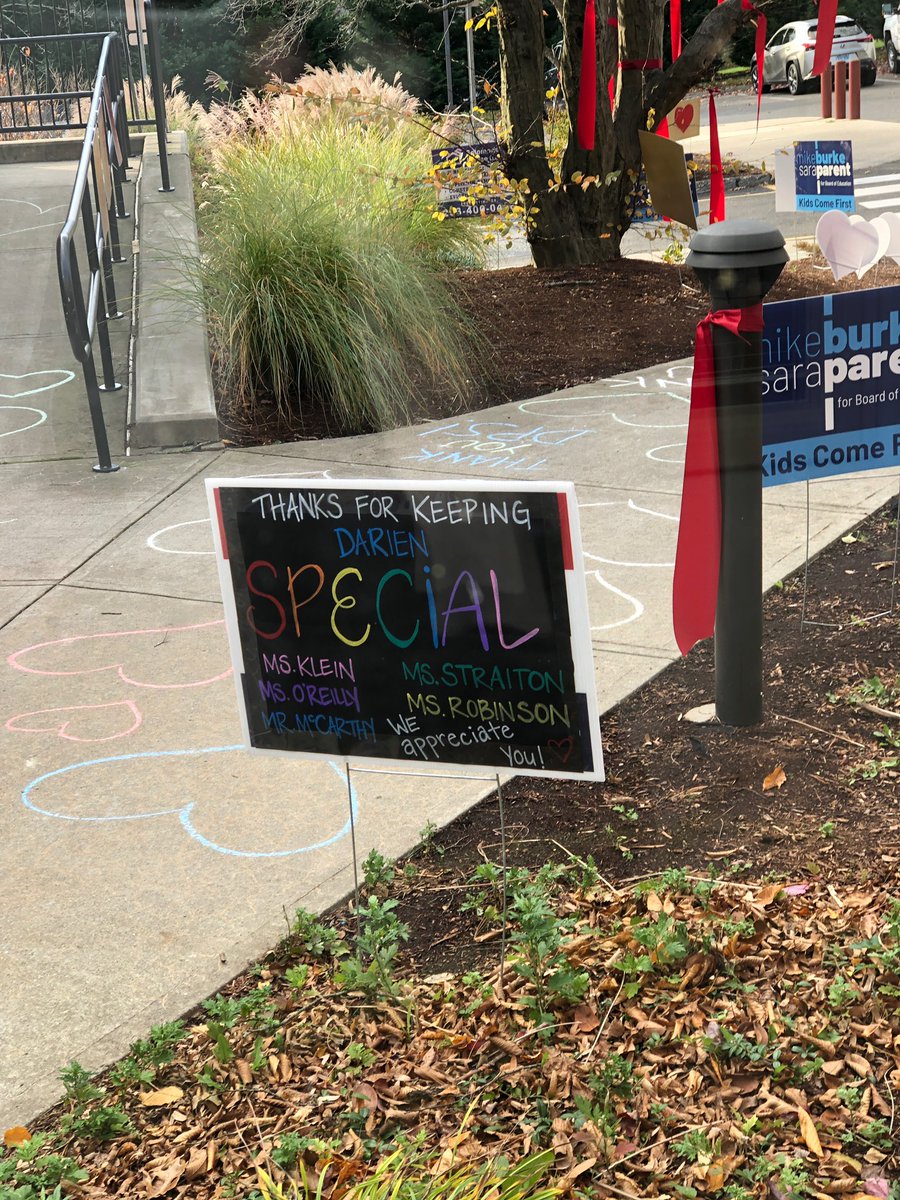 mikeburke
saraparent
for Board of Education
Kids Come First
mikeburke
saraparent
for Board of
Kids Come F
THANK
YOU
DPS!
THANKS FOR KEEPING
DARIEN
SPECiAL
MS. KLEIN
MS. O'REILLY
MR. McCARTHY
MS. STRAITON
MS. ROBINSON
WE
appreciate
you!